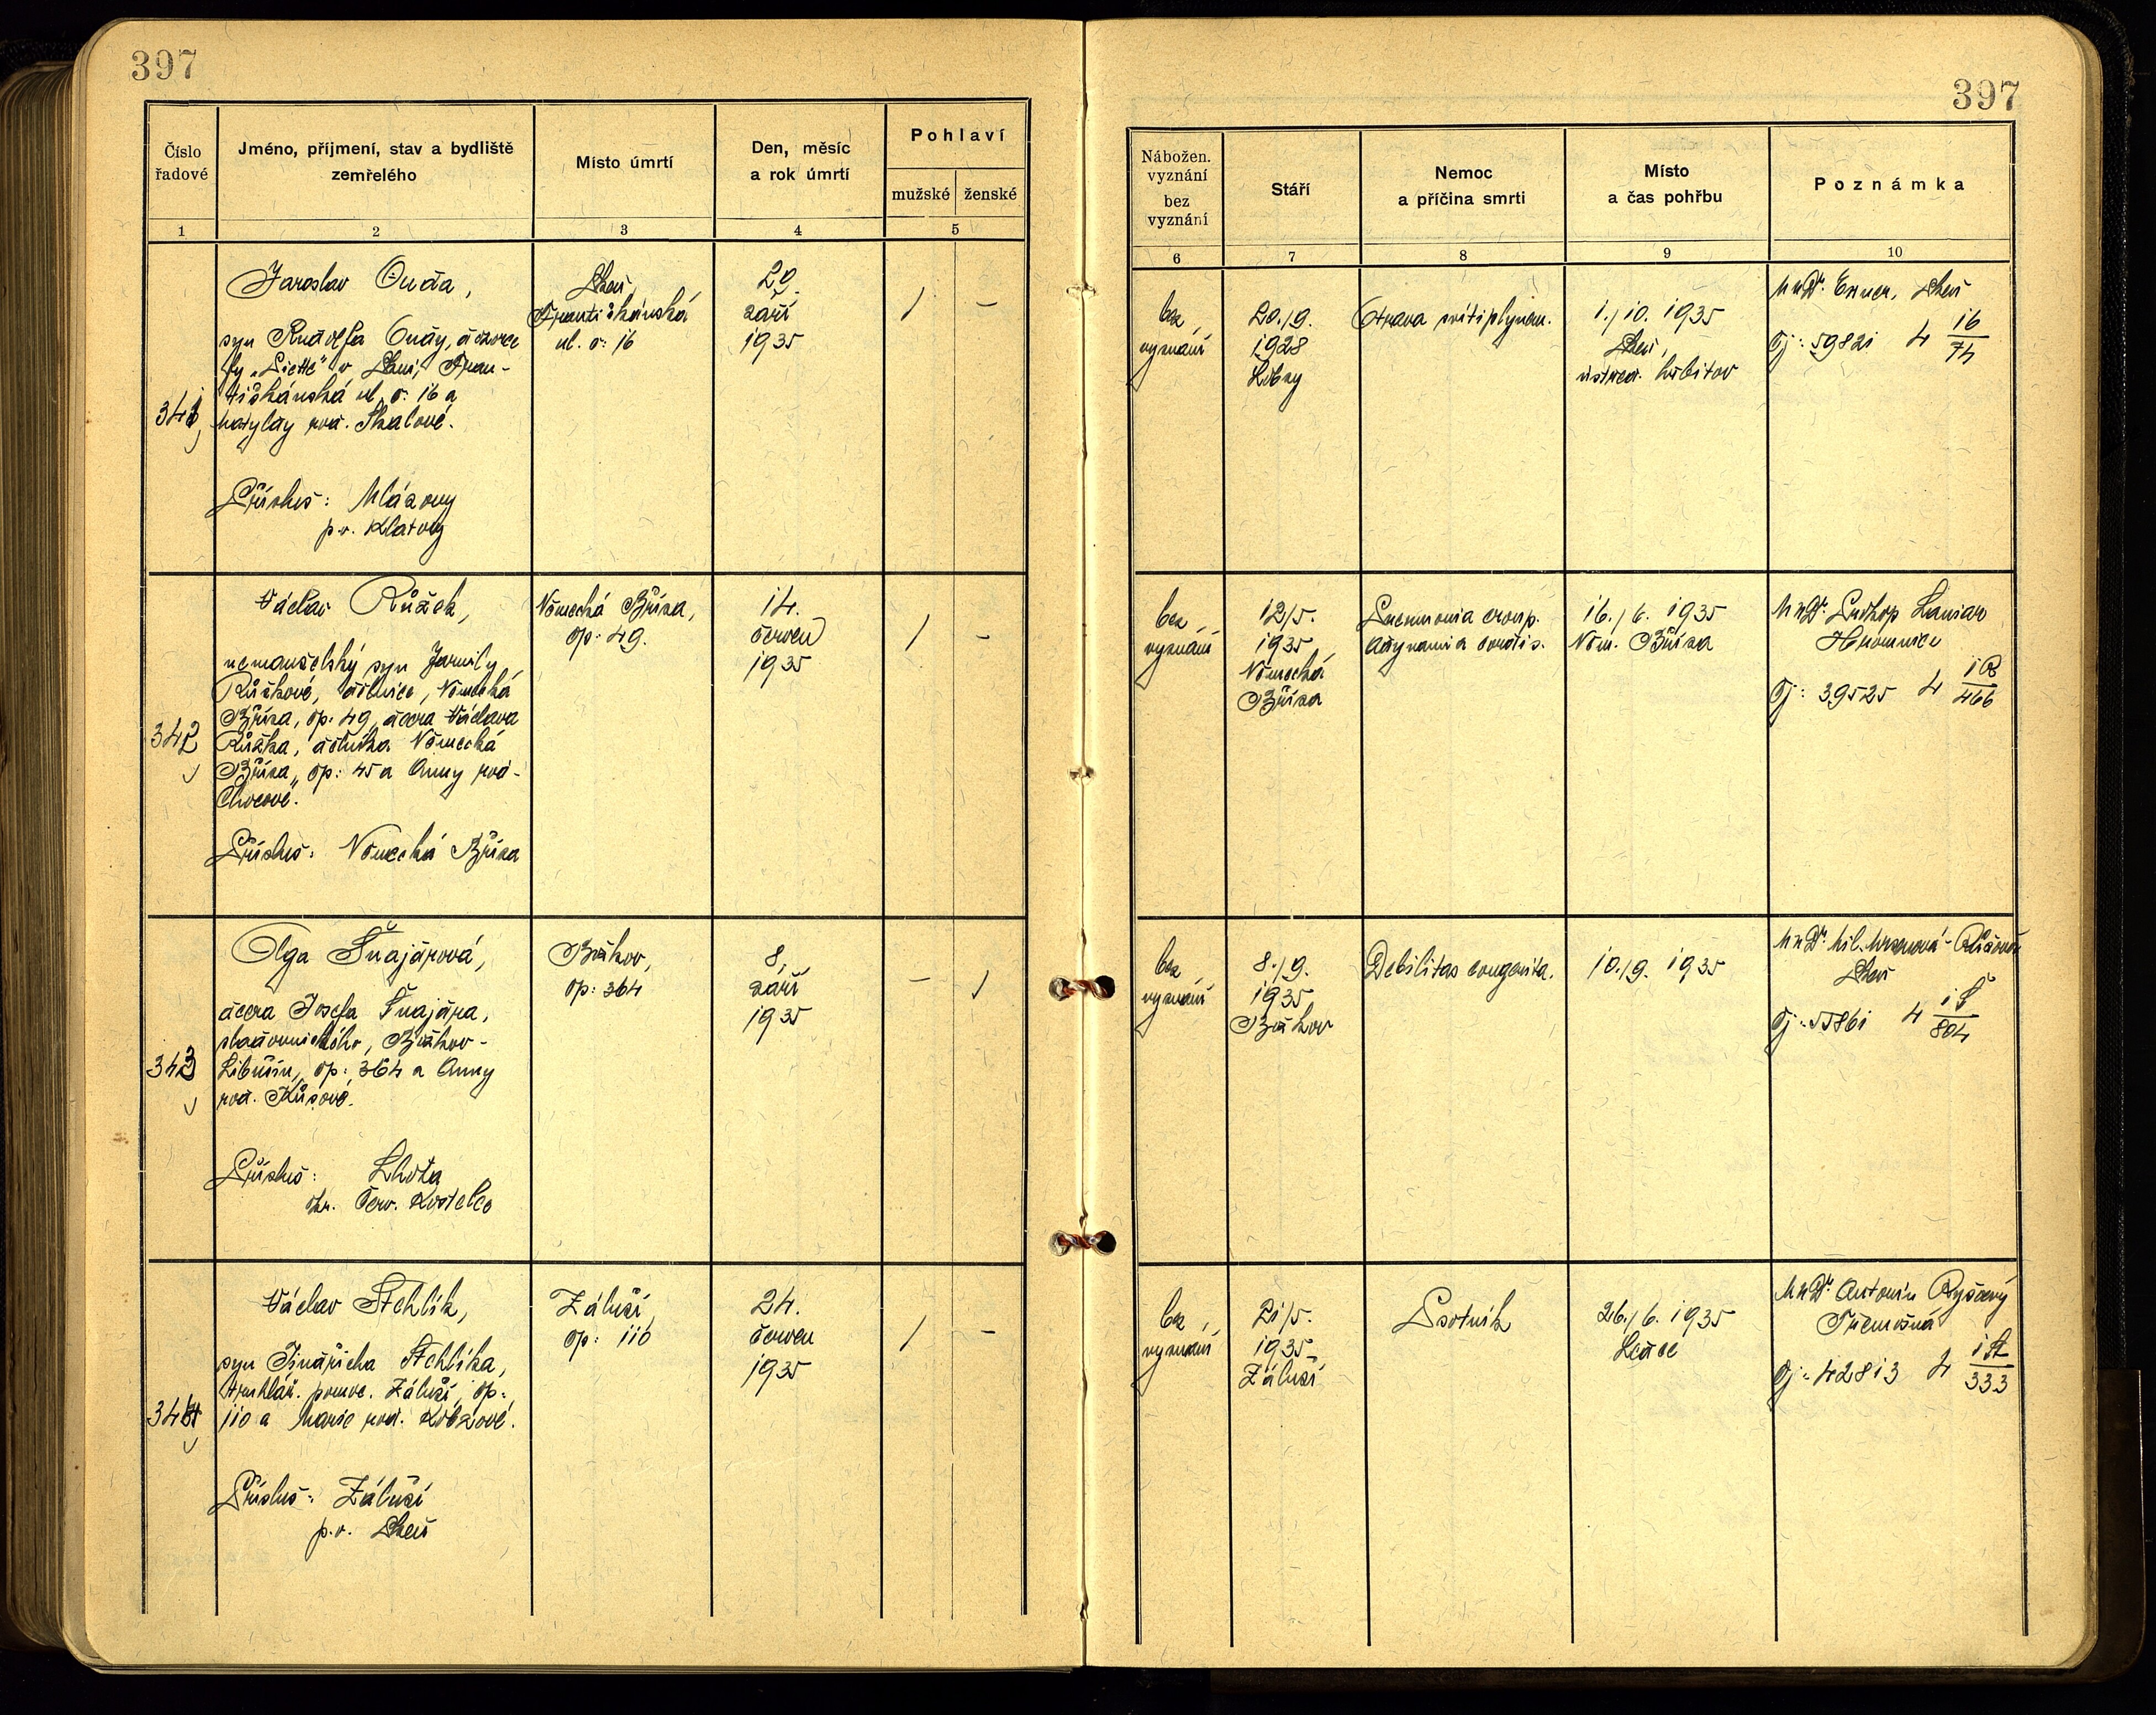 397
Číslo řadové
Jméno, příjmení, stav a bydliště zemřelého
Místo úmrtí
Den, měsíc a rok úmrtí
Pohlaví
mužské
ženské
1
2
3
4
5
341
Jaroslav Ouda,
syn Rudolfa Oudy, dozorce
fy „Piette" v Plzni, Fran-
tiškánská ul. č. 16 a
Matyldy roz. Skalové.
Přísluš: Mlázovy
p.v. Klatovy
Plzeň,
Františkánská
ul. č. 16
29.
září
1935
/
-
342
Václav Růžek,
nemanželský syn Jarmily
Růžkové, dělnice, Německá
Bříza, čp. 49, dcera Václava
Růžka, dělníka Německá
Bříza, čp. 45 a Anny roz.
Přísluš: Německá Bříza
Německá Bříza,
čp. 49.
14.
červen
1935
/
-
343
Olga Šnajdrová,
dcera Josefa Šnajdra,
Libušín, čp. 364 a Anny
roz. Kůsové.
Přísluš: Lhota
okr. Červ. Kostelec
čp. 364
8.
září
1935
-
/
344
Václav Stehlík,
syn Jindřicha Stehlíka,
truhlář. pomoc. Záluží, čp.
110 a Marie roz. Kobzové.
Přísluš: Záluží
p.v. Plzeň
Záluží,
čp. 110
24.
červen
1935
/
-
397
Nábožen. vyznání
bez vyznání
Stáří
Nemoc a příčina smrti
Místo a čas pohřbu
Poznámka
6
7
8
9
10
bez
vyznání
20./9.
1928
Otrava svítiplynem.
1./10. 1935
Plzeň,
ústřed. hřbitov
MUDr. Exner, Plzeň
čj: 59821 4 16/74
bez
vyznání
12/5.
1935
Německá
Bříza
Pneumonia croup.
Adynamia cordis.
16./6. 1935
Něm. Bříza
MUDr. Prokop Laniar
Hromnice
čj: 39525 4 1R/466
bez
vyznání
8./9.
1935
Debilitas congenita.
10./9. 1935
Plzeň
čj: 55861 4 1Š/804
bez
vyznání
21/5.
1935
Záluží
Psotník
26./6. 1935
Ledce
MUDr. Antonín Ryšavý
Třemošná
čj: 42813 4 1St/333